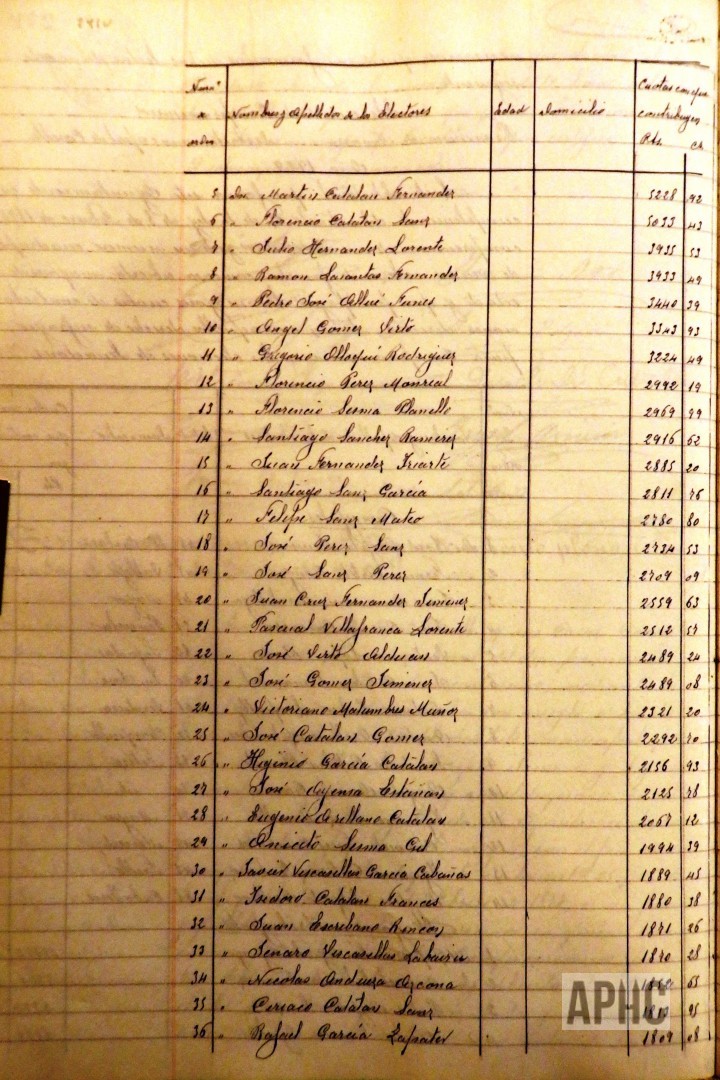 Num.º de orden Nombres y Apellidos de los Electores Edad Domicilio Cuotas con que contribuyen Pts. Cs
5 Dn. Martin Catalan Fernandez 5228 92
6 " Florencio Catalan Sanz 5033 43
7 " Julio Hernandez Lorente 3935 53
8 " Ramon Lasantas Fernandez 3933 49
9 " Pedro José Allué Funes 3440 39
10 " Angel Gomez Virto 3343 93
11 " Gregorio Olloqui Rodriguez 3224 49
12 " Florencio Perez Monreal 2992 19
13 " Florencio Sesma Planello 2969 99
14 " Santiago Sanchez Ramirez 2916 62
15 " Juan Fernandez Iriarte 2885 20
16 " Santiago Sanz García 2811 76
17 " Felipe Sanz Mateo 2780 80
18 " José Perez Sanz 2734 53
19 " José Sanz Perez 2709 09
20 " Juan Cruz Fernandez Jimenez 2559 63
21 " Pascual Villafranca Lorente 2512 57
22 " José Virto Alduan 2489 24
23 " José Gomez Jimenez 2489 08
24 " Victoriano Malumbres Muñoz 2321 20
25 " José Catalan Gomez 2292 70
26 " Higinio García Catalan 2156 93
27 " José Ayensa Estáñan 2125 78
28 " Eugenio Arellano Catalan 2067 12
29 " Aniceto Sesma Gil 1994 39
30 " Javier Vescasillas García Cabañas 1889 45
31 " Isidoro Catalan Frances 1880 38
32 " Juan Escribano Rincon 1871 26
33 " Jenaro Vescasillas 1870 28
34 " Nicolas Anduera Azcona 65
35 " Ciriaco Catalan Sanz 95
36 " Rafael García Lapater 1809 08
APHC